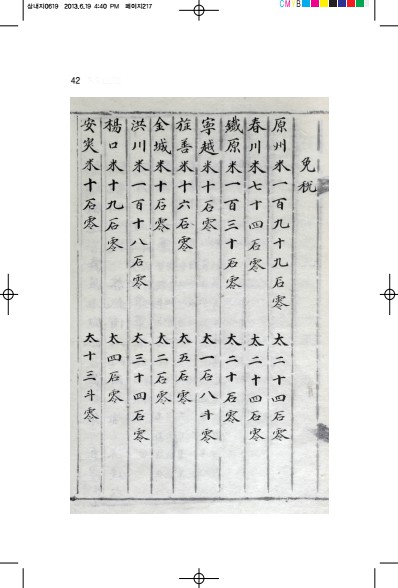 삼내지0619 2013.6.19 4:40 PM 페이지217
CMYB
42
免稅
原州米一百九十九石零 太二十四石零
春川米七十四石零 太二十四石零
鐵原米一百三十石零 太二十石零
寧越米十石零 太一石八斗零
旌善米十六石零 太五石零
金城米十石零 太二石零
洪川米一百十八石零 太三十四石零
楊口米十九石零 太四石零
安峽米十石零 太十三斗零